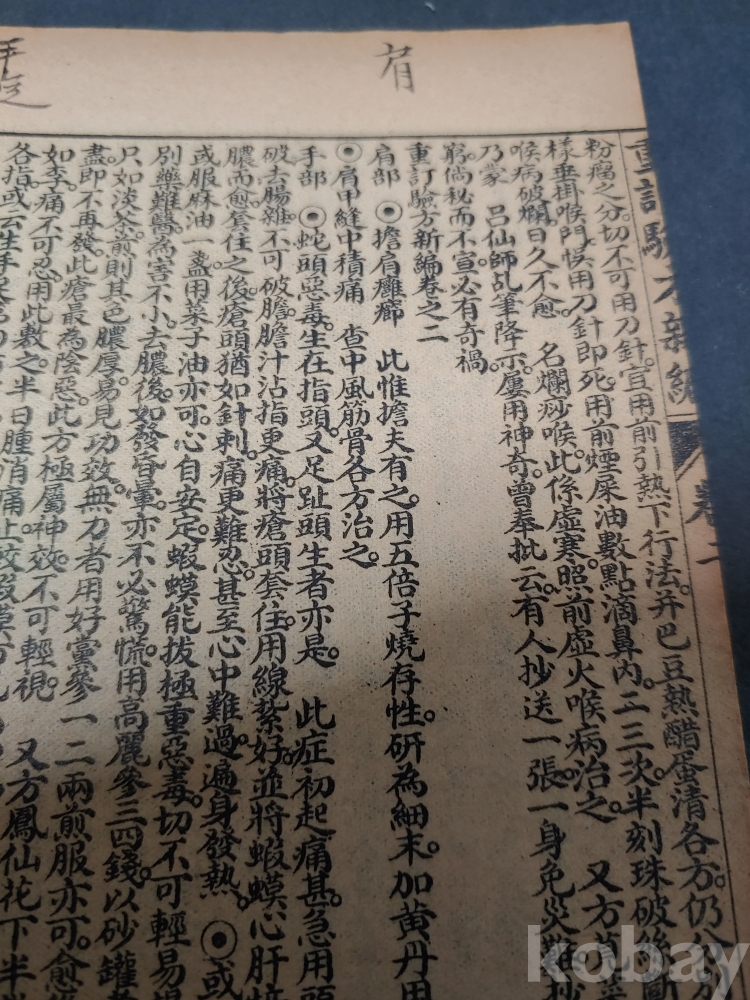 肩
手
重訂驗方新編
卷二
粉瘤之分切不可用刀針宜用前引熱下行法并巴豆熱醋蛋清各方仍
樣垂掛喉門悞用刀針即死用前煙屎油數點滴鼻內二三次半刻珠破絲斷
喉病破爛日久不愈 名爛痧喉此係虛寒照前虛火喉病治之 又方
乃蒙 呂仙師乩筆降示屢用神奇曾奉批云有人抄送一張一身免災難抄
窮倘秘而不宣必有奇禍
重訂驗方新編卷之二
肩部 ◉擔肩癰癤 此惟擔夫有之用五倍子燒存性研為細末加黃丹用
◉肩甲縫中積痛 查中風筋骨各方治之
手部 ◉蛇頭惡毒生在指頭又足趾頭生者亦是 此症初起痛甚急用
破去腸雜不可破膽膽汁沾指更痛將瘡頭套住用線紮好並將蝦蟆心肝
膿而愈套住之後瘡頭猶如針刺痛更難忍甚至心中難過遍身發熱 ◉或
或服麻油一盞用菜子油亦可心自安定蝦蟆能拔極重惡毒切不可輕易
別藥難醫為害不小去膿後如發昏暈亦不必驚慌用高麗參三四錢以砂罐
只如淡茶煎則其色膿厚易見功效無力者用好黨參一二兩煎服亦可愈
盡即不再發此瘡最為陰惡此方極屬神效不可輕視 又方鳳仙花下半
如李痛不可忍用此敷之半日腫消痛止
各指或云生手
kobay